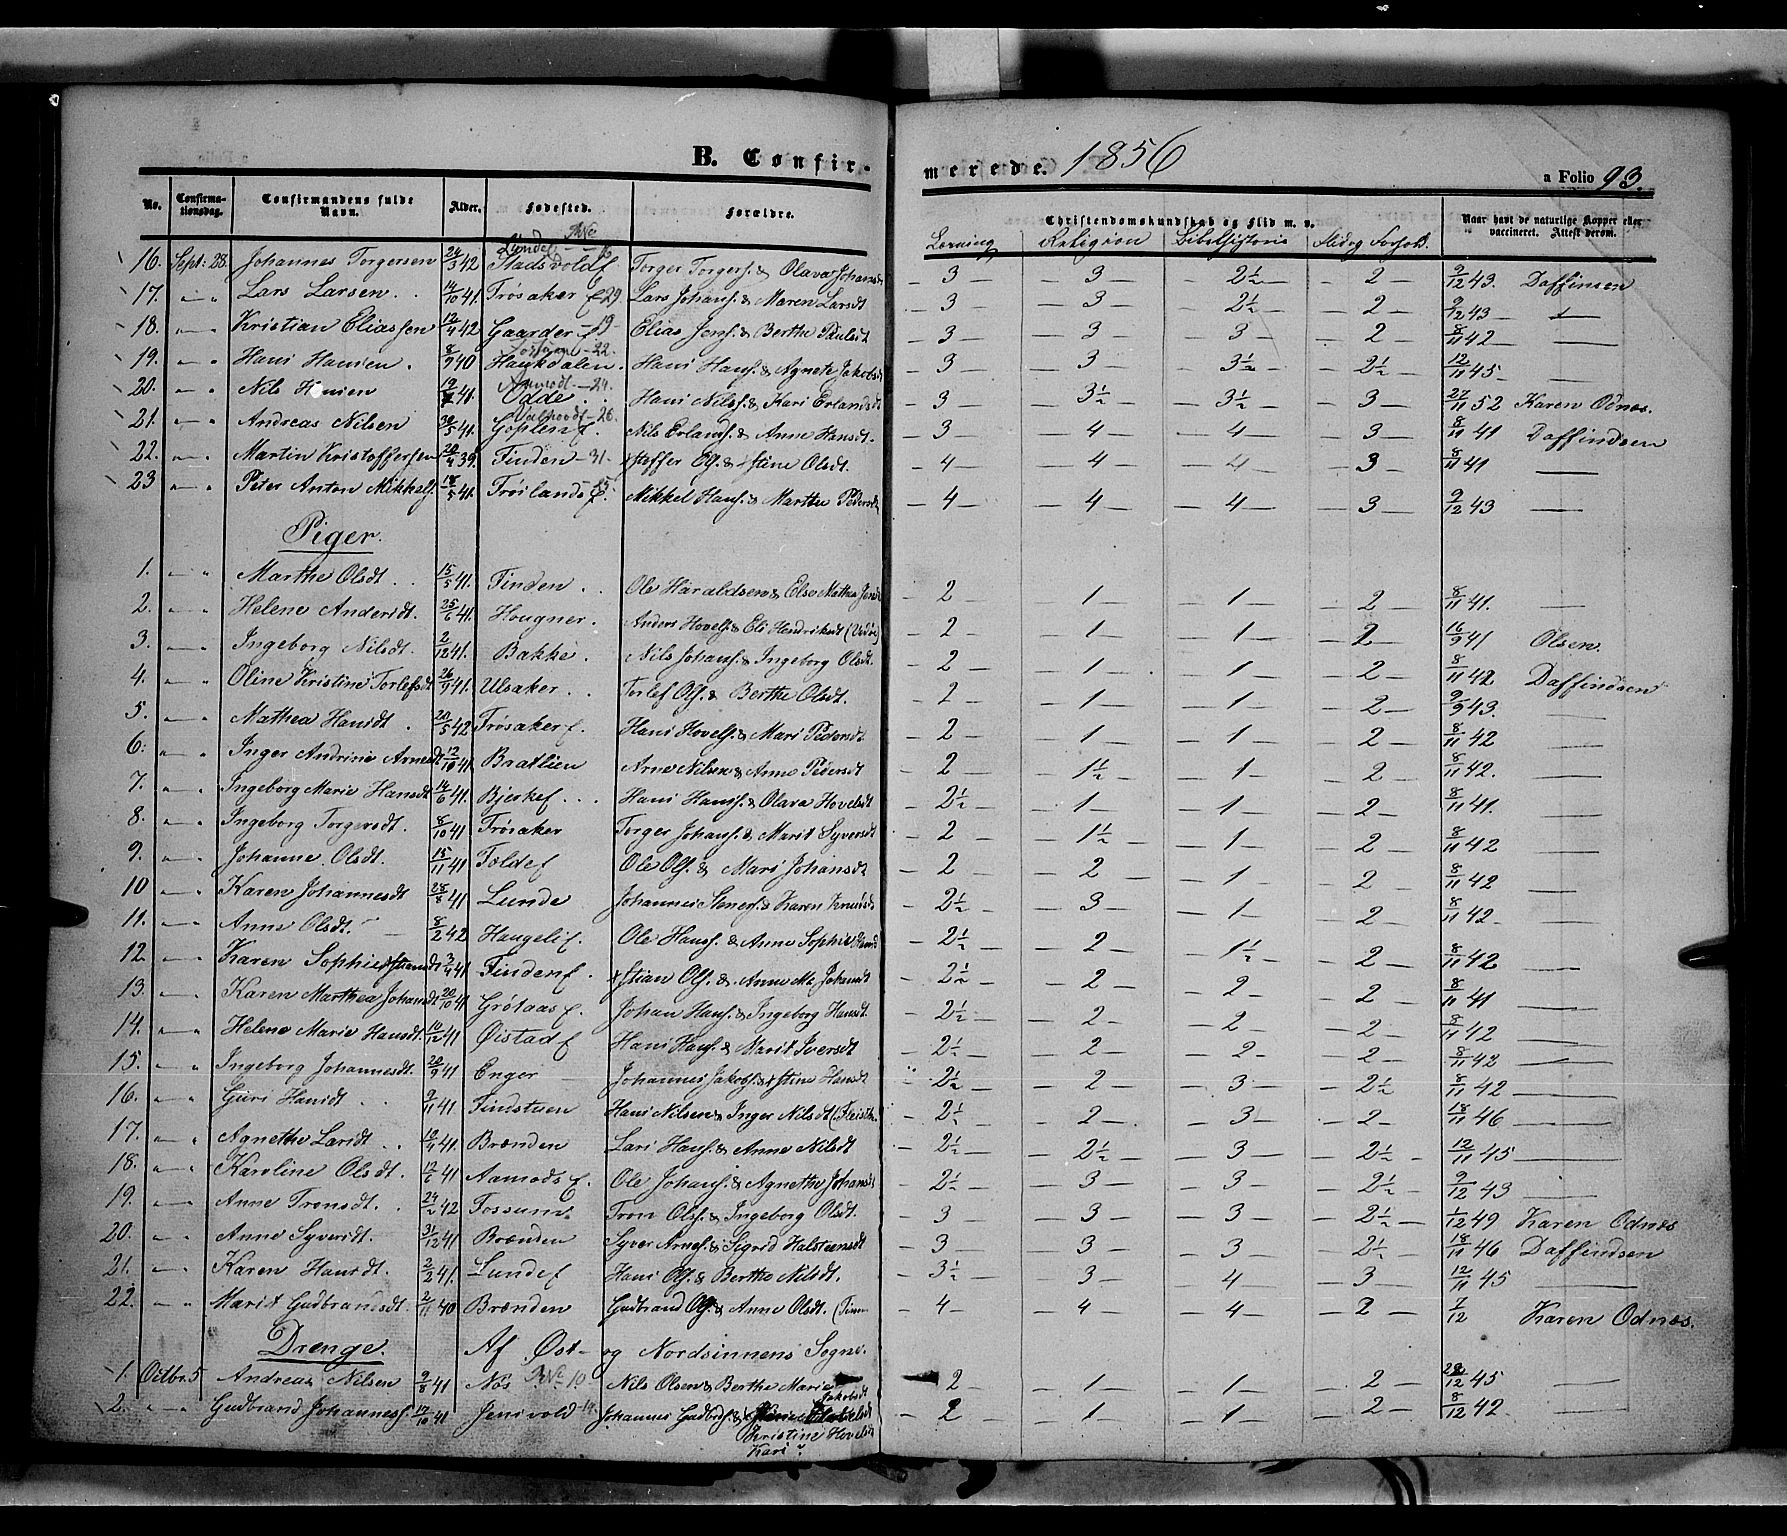 B. Confirmerede. 1856 a Folio 93.
No. Confirmationsdag. Confirmandens fulde Navn. Alder. Fødested. Forældre. Christendomskundskab og Flid m. v. Naar havt de naturlige Kopper eller vaccineret. Attest derom.
Læsning Religion Bibelhistorie Flid og Forhold.
16. Sept: 28. Johannes Torgersen 24/3 42 Stadsvoldf Torger Torgers. & Olava Johansdt 3 3 2½ 2 9/12 43. Daffinsen
17. " Lars Larsen 14/10 41. Trøsaker f 29. Lars Johans. & Maren Larsdt 3 3 2½ 2 9/12 43
18. " Kristian Eliassen 12/4 42 Gaarder 19 Elias Jens. & Berthe Paulsdt 3 3 3 2 8/11 42
19. " Hans Hansen 8/9 40 Haukdalen 22. Hans Hans. & Agnete Jakobsdt 3 3 3½ 2½ 12/11 45
20. " Nils Hansen 19/ 41. Aamodt 24. Odde Hans Nils. & Kari Erlandsdt 3 3½ 3½ 3 27/11 52 Karen Odnæs.
21. " Andreas Nilsen 30/5 41. 26. Goplen f. Nils Erlands. & Anne Hansdt. 3 4 4 3 8/11 41 Daffindsen
22. " Martin Kristoffersen 20/4 39. Finden 31. Xstoffer El. & Xstine Olsdt. 4 4 4 3 8/11 41
23 " Peter Anton Mikkels. 18/5 41. Frøilands f. Mikkel Hans. & Marthe Pedersdt 4 4 4 3 9/12 43
Piger.
1. " Marthe Olsdt 15/5 41. Finden Ole Haraldsen & Else Mathea Jensdt 2 1 1 2 8/11 41.
2. " Helene Andersdt. 25/6 41. Hougner. Anders Hovels. & Eli Hendriksdt 2 1 1 2 16/9 41 Olsen.
3. " Ingeborg Nilsdt. 2/12 41. Bakke. Nils Johans. & Ingeborg Olsdt. 2 1 1 2 8/11 42 Daffindsen
4. " Oline Kristine Torlefsdt 26/9 41. Ulsaker Torlef Ols. & Berthe Olsdt. 2 1 1 2 9/9 43.
5. " Mathea Hansdt 20/5 42 Trøsaker f. Hans Hovels. & Mari Pedersdt 2 1 1 2 8/11 42
6. " Inger Andrine Arnesdt 12/10 41. Braatlien Arne Nilsen & Anne Pedersdt 2 1½ 1 2 8/11 42.
7. " Ingeborg Marie Hansdt 14/6 41. Bjeskef Hans Hans. & Olava Hovelsdt 2½ 1 1 2 8/11 41.
8. " Ingeborg Torgersdt. 8/10 41 Trøsaker Torger Johans. & Marit Syversdt 2 1½ 1 2 8/11 42
9. " Johanne Olsdt. 15/11 41 Foldef Ole Ols. & Mari Johansdt 2 2 1 2 8/11 42
10 " Karen Johannesdt 28/8 41 Lunde Johannes Steners. & Karen Knudsdt 2½ 3 1 2 8/11 42
11. " Anne Olsdt. 8/2 42 Haugeli f. Ole Hans. & Anne Sophie Hansd 2½ 2 1½ 2 8/11 42
12. " Karen Sophie Xstiansdt 3/4 41 Finden f. Xstian Ols. & Anne Ma. Johansdt 2½ 2 2 2 8/11 41
13. " Karen Marthea Johansdt 20/10 41 Grøtaas f. Johan Hans. & Ingeborg Hansdt. 2½ 2 2 2 8/11 42
14. " Helene Marie Hansdt. 10/12 41 Øistad f Hans Hans. & Marit Iversdt 2½ 2 2 2 8/11 42
15. " Ingeborg Johannesdt. 20/9 41 Enger Johannes Jakobs. & Xstine Hansdt 2½ 2 3 2½ 8/11 42
16. " Guri Hansdt 9/11 41 Findstuen Hans Nilsen & Inger Nilsdt 2½ 2 3 2 18/11 46
17. " Agnethe Larsdt 10/4 41. Brænden Lars Hans. & Anne Nilsdt 2½ 2½ 3 2½ 12/11 45
18. " Karoline Olsdt. 12/6 41 Aamods f. Ole Johans. & Agnethe Johansdt 2½ 3 3 2½ 9/12 43
19. " Anne Tronsdt. 24/2 42 Fossum Tron Ols. & Ingeborg Olsdt. 3 3 3 2½ 1/12 49 Karen Odnæs
20. " Anne Syversdt. 31/12 41 Brænden Syver Arnes. & Sigrid Halsteensdt 3 3 3 2½ 18/11 46 Daffindsen
21. " Karen Hansdt. 2/2 41. Lundef Hans Ols. & Berthe Nilsdt. 3½ 3 4 3 12/11 45
22. " Marit Gudbrandsdt. 2/11 40 Brænden Gudbrand Ols. & Anne Olsdt. 4 4 4 2 7/12 Karen Odnæs.
Drenge. Af Øst- og Nordsinnens Sogne.
1. Octbr. 5 Andreas Nilsen 9/8 41 Nøs No. 10 Nils Olsen & Berthe Marie Jakobsdt 2 1 1 2 28/12 45
2. " Gudbrand Johanness. 17/10 41 Jensvold 14. Johannes Gudbrds. & 2 1 1 2 8/12 42
Kristine Hovelsdt
Kari